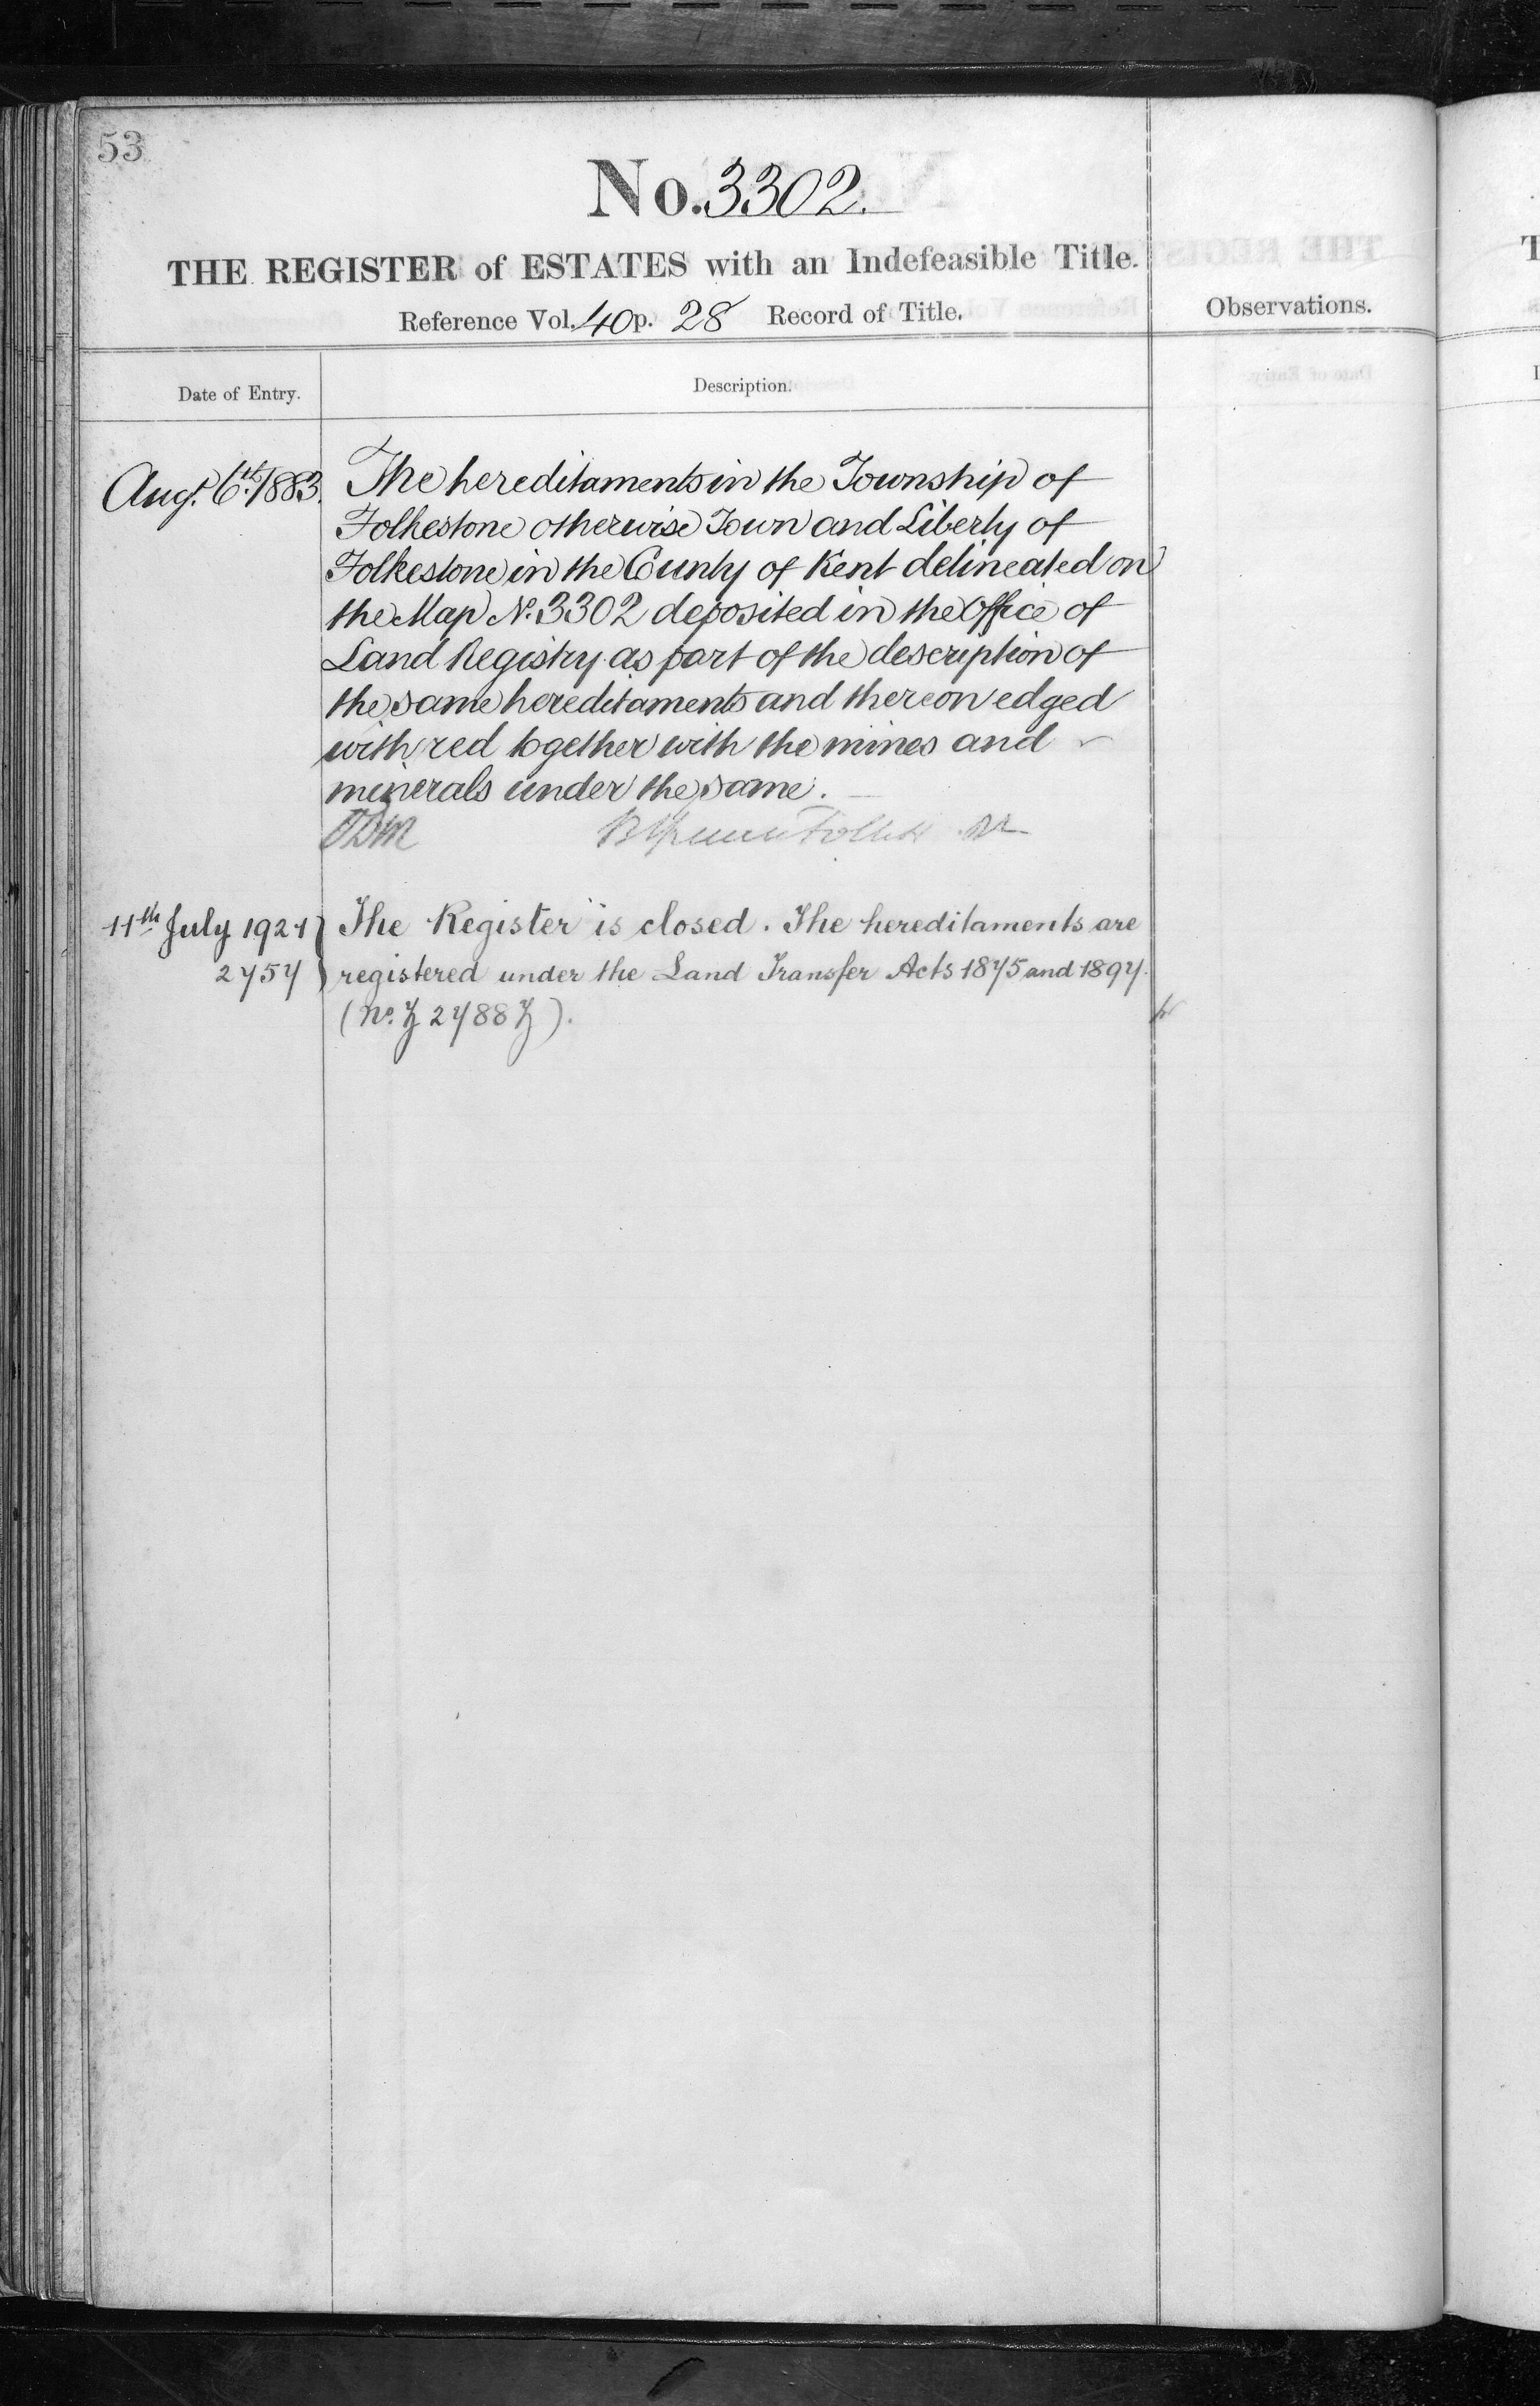 53
No. 3302.
THE REGISTER of ESTATES with an Indefeasible Title.
Reference Vol. 40 p. 28 Record of Title.
Observations.
Date of Entry.
Description.
Aug. 6th 1883. The hereditaments in the Township of
Folkestone otherwise Town and Liberty of
Folkestone in the County of Kent delineated on
the Map No. 3302 deposited in the Office of
Land Registry as part of the description of
the same hereditaments and thereon edged
with red together with the mines and
minerals under the same.
11th July 1921 } The Register is closed. The hereditaments are
2757 } registered under the Land Transfer Acts 1875 and 1897.
(No. Z 2788 Z).